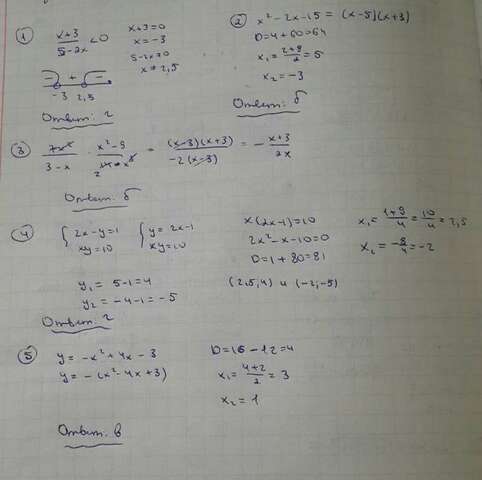 ① (x+3)/(5-2x) < 0
x+3=0
x=-3
5-2x≠0
x≠2,5
- + -
-3 2,5
Ответ: г
② x² - 2x - 15 = (x-5)(x+3)
D=4+60=64
x₁ = (2+8)/2 = 5
x₂ = -3
Ответ: б
③ /(3-x) · (x²-9)/ = (x-3)(x+3)/(-2(x-3)) = - (x+3)/(2x)
Ответ: б
④ { 2x-y=1 { y=2x-1
xy=10 xy=10
x(2x-1)=10
2x²-x-10=0
D=1+80=81
x₁ = (1+9)/4 = 10/4 = 2,5
x₂ = -8/4 = -2
y₁ = 5-1=4
y₂ = -4-1=-5
(2,5; 4) и (-2; -5)
Ответ: г
⑤ y = -x²+4x-3
y = -(x²-4x+3)
D=16-12=4
x₁ = (4+2)/2 = 3
x₂ = 1
Ответ: в